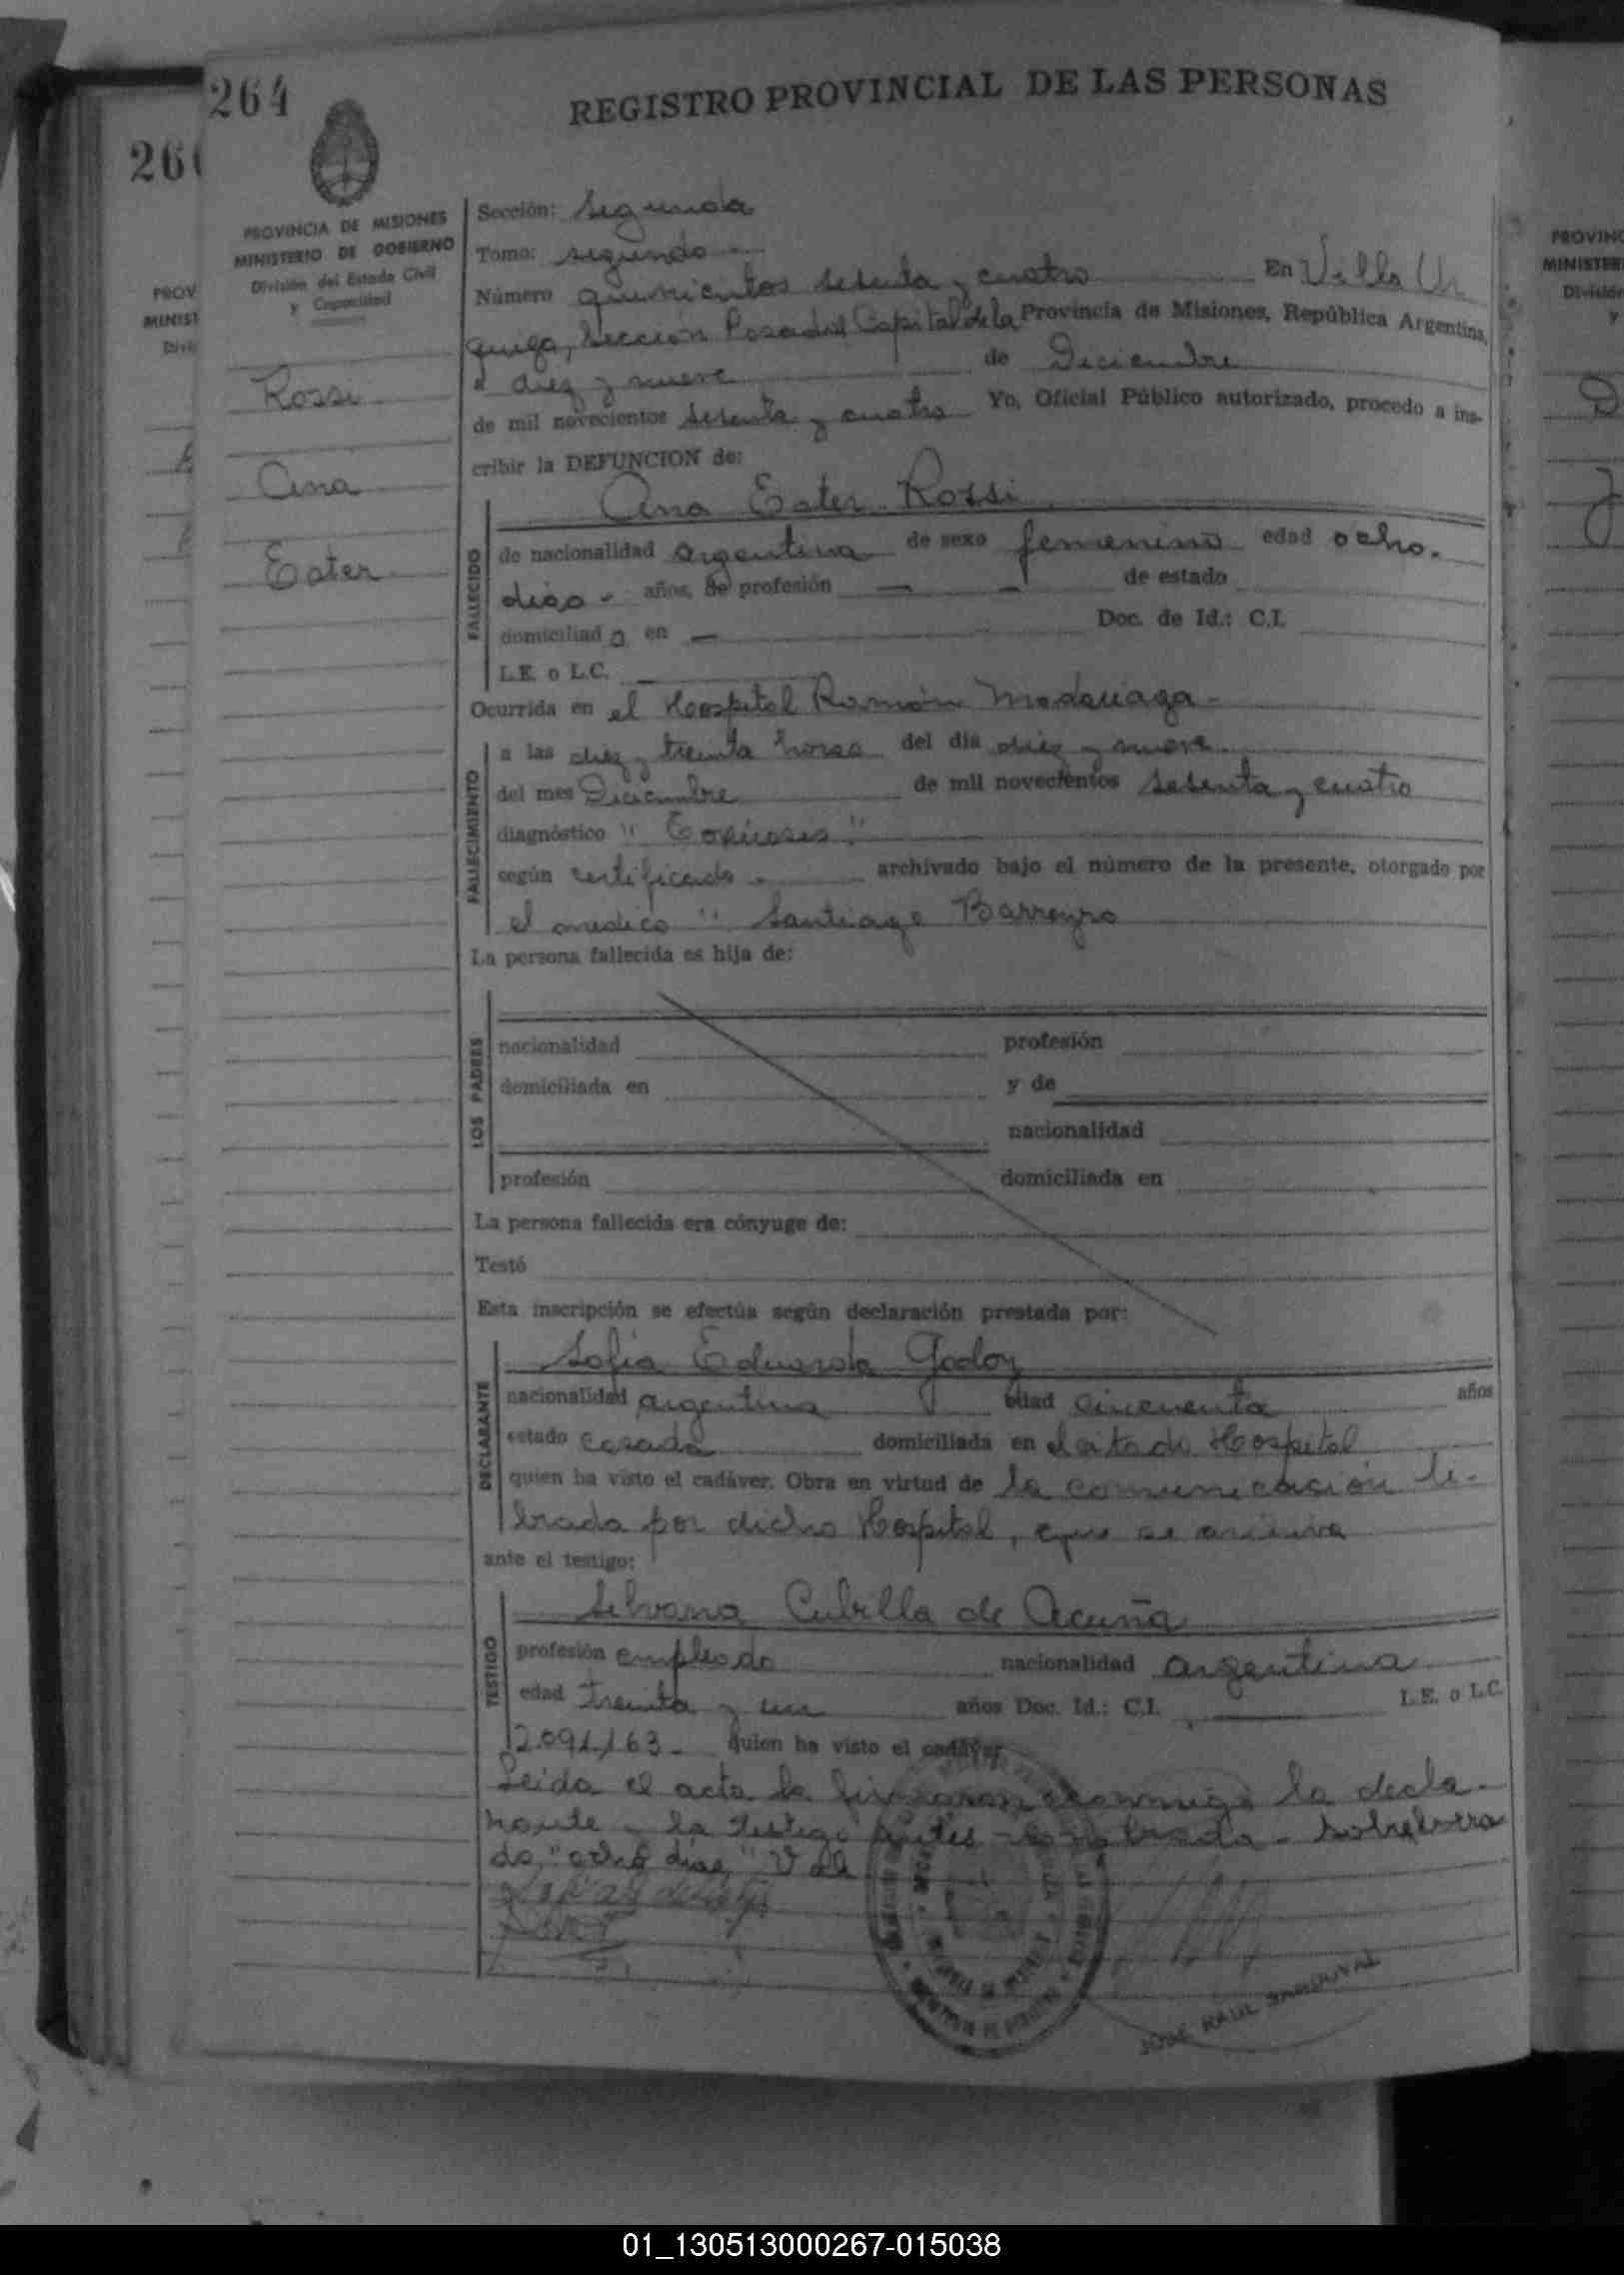 264
REGISTRO PROVINCIAL DE LAS PERSONAS
26
PROVINCIA DE MISIONES
MINISTERIO DE GOBIERNO
División del Estado Civil
y Capacidad
Rossi
Ana
Ester
Sección: Segunda
Tomo: segundo
Número quinientos setenta y cuatro En Villa Ur
quiza, Sección Posadas Capital de la Provincia de Misiones, República Argentina,
a diez y nueve de Diciembre
de mil novecientos setenta y cuatro Yo, Oficial Público autorizado, procedo a ins-
cribir la DEFUNCION de:
Ana Ester Rossi
FALLECIDO
de nacionalidad argentina de sexo femenino edad ocho
dias - años, de profesión — — de estado
domiciliad a en — Doc. de Id.: C.I.
L.E. o L.C. —
Ocurrida en el Hospital Ramón Madariaga -
FALLECIMIENTO
a las diez y treinta horas del día diez y nueve
del mes Diciembre de mil novecientos setenta y cuatro
diagnóstico
según certificado - archivado bajo el número de la presente, otorgado por
el medico " Santiago Barreyro
La persona fallecida es hija de:
LOS PADRES
nacionalidad profesión
domiciliada en y de
nacionalidad
profesión domiciliada en
La persona fallecida era cónyuge de:
Testó
Esta inscripción se efectúa según declaración prestada por:
DECLARANTE
Sofia Eduarda Godoy
nacionalidad argentina edad cincuenta años
estado casada domiciliada en el citado Hospital
quien ha visto el cadáver. Obra en virtud de la comunicación li-
brada por dicho Hospital, que se archiva
ante el testigo:
TESTIGO
Silvana Cubilla de Acuña
profesión empleada nacionalidad argentina
edad treinta y un años Doc. Id.: C.I. — L.E. o L.C.
quien ha visto el cadáver
Leida el acta la firmaron conmigo la decla-
rante y la testigo antes nombrada - Sobreborra
do "ocho dias" Vale
JOSE RAUL SANDOVAL
PROV
MINIST
Divi
PROVINC
MINISTER
División
y
01_130513000267-015038